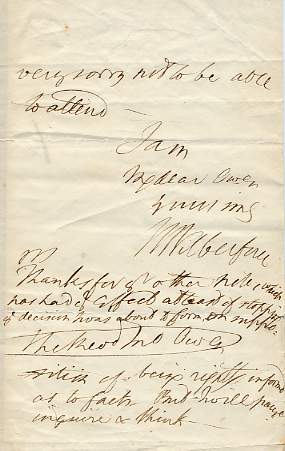 very sorry not to be able
to attend —
I am
My dear Owen
yours sincy
W Wilberforce
Thanks for yr other Note which
has had ye effect at least of stopping
a decision I was about to form on suppo-
The Revd Jno Owen
sition of being rightly informd
as to facts But I will pause
inquire & think —